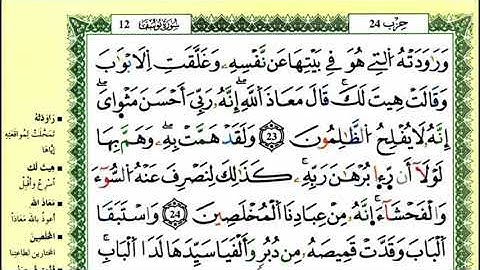 حزب 24
سورة يوسف 12
وَرَٰوَدَتْهُ اُ۬لتِے هُوَ فِے بَيْتِهَا عَن نَّفْسِهِۦ وَغَلَّقَتِ اِ۬لَابْوَٰبَ
وَقَالَتْ هِيتَ لَكَۖ قَالَ مَعَاذَ اَ۬للَّهِۖ إِنَّهُۥ رَبِّيَ أَحْسَنَ مَثْوَايَۖ
إِنَّهُۥ لَا يُفْلِحُ اُ۬لظَّٰلِمُونَۖ 23 وَلَقَدْ هَمَّتْ بِهِۦۖ وَهَمَّ بِهَا
لَوْلَآ أَن رَّء۪ا بُرْهَٰنَ رَبِّهِۦۖ كَذَٰلِكَ لِنَصْرِفَ عَنْهُ اُ۬لسُّوٓءَ
وَالْفَحْشَآءَۖ اِنَّهُۥ مِنْ عِبَادِنَا اَ۬لْمُخْلَصِينَۖ 24 وَاسْتَبَقَا
اَ۬لْبَابَ وَقَدَّتْ قَمِيصَهُۥ مِن دُبُرٖ وَأَلْفَيَا سَيِّدَهَا لَدَا اَ۬لْبَابِۖ
رَاوَدَتْهُ
تَمَحَّلَتْ لِمُوَاقَعَتِهِ
إيَّاهَا
هِيتَ لَكَ
أَسْرِعْ وَأَقْبِلْ
مَعَاذَ الله
أعوذ بالله معاذاً
المُخْلَصِينَ
المختارين لطاعتنا